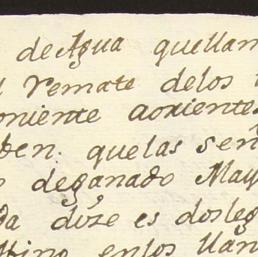 de Agua quellam
remate delos
oniente aoriente
en. quelas señ
deganado May
da dize es dosleg
enlos llan